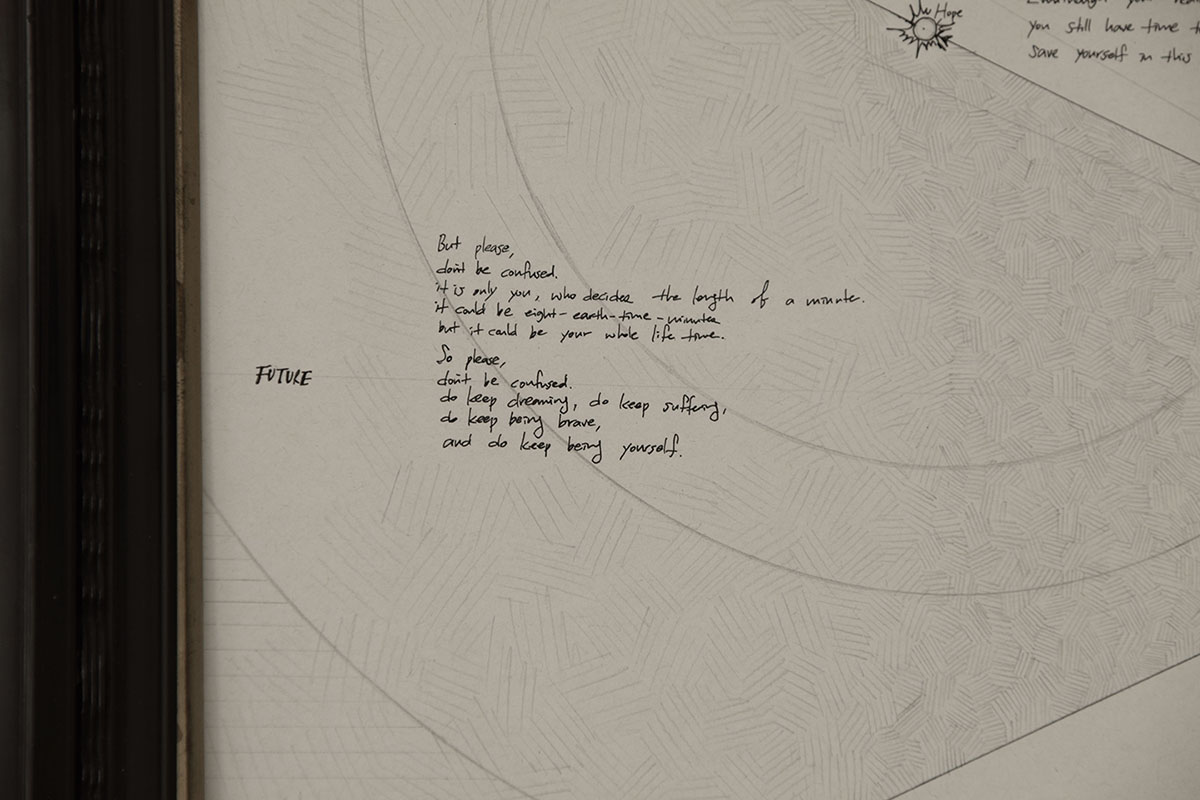 Hope
you still have time
save yourself in this
But please,
don't be confused.
it is only you, who decides the length of a minute.
it could be eight-earth-time-minutes
but it could be your whole life time.
So please,
don't be confused.
FUTURE
do keep dreaming, do keep suffering,
do keep being brave,
and do keep being yourself.